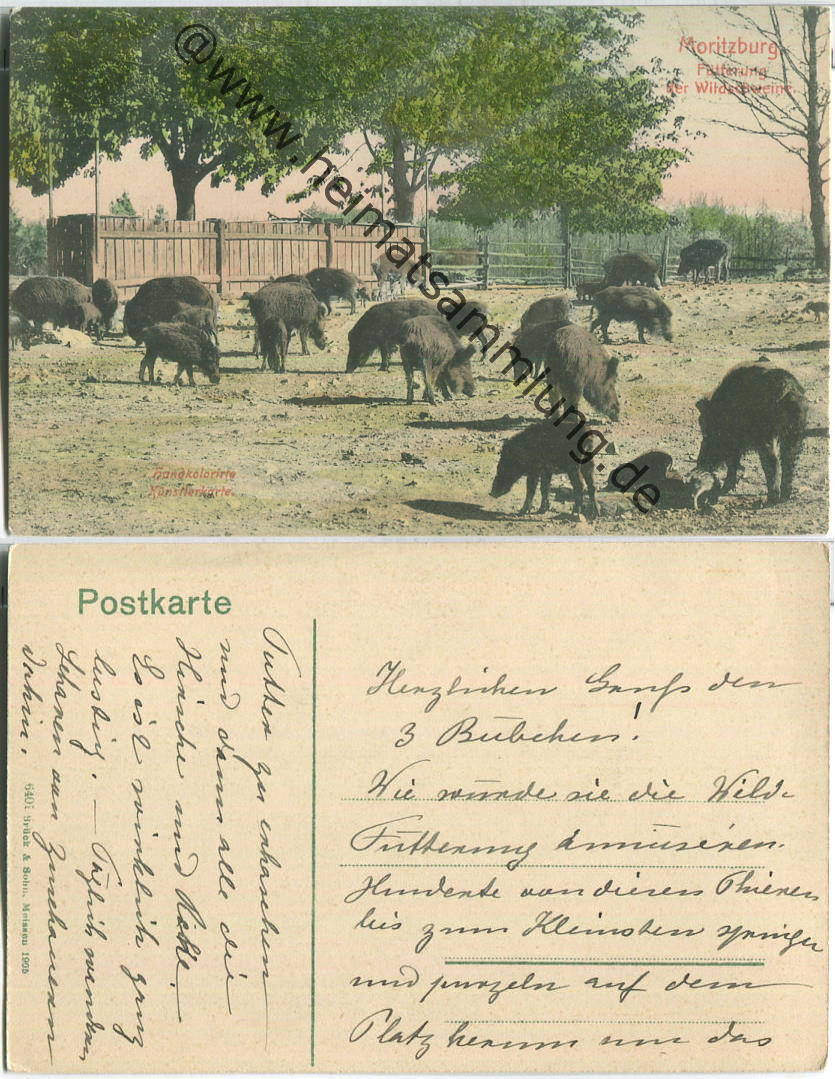 Moritzburg
Fütterung
der Wildschweine.
@www.heimatsammlung.de
Handkolorirte
Künstlerkarte.
Postkarte
Herzlichen Gruß den
3 Bübchen!
Wie würde sie die Wild-
Fütterung amüsiren.
Hunderte von diesen Thieren
bis zum Kleinsten springen
und purzeln auf dem
Platz herum um das
Futter zu erhaschen
und dann alle die
Hirsche und Rehe!
Es ist wirklich ganz
lustig. – Täglich wandern
Scharen von Zuschauern
dahin.
6407 Brück & Sohn, Meissen 1905